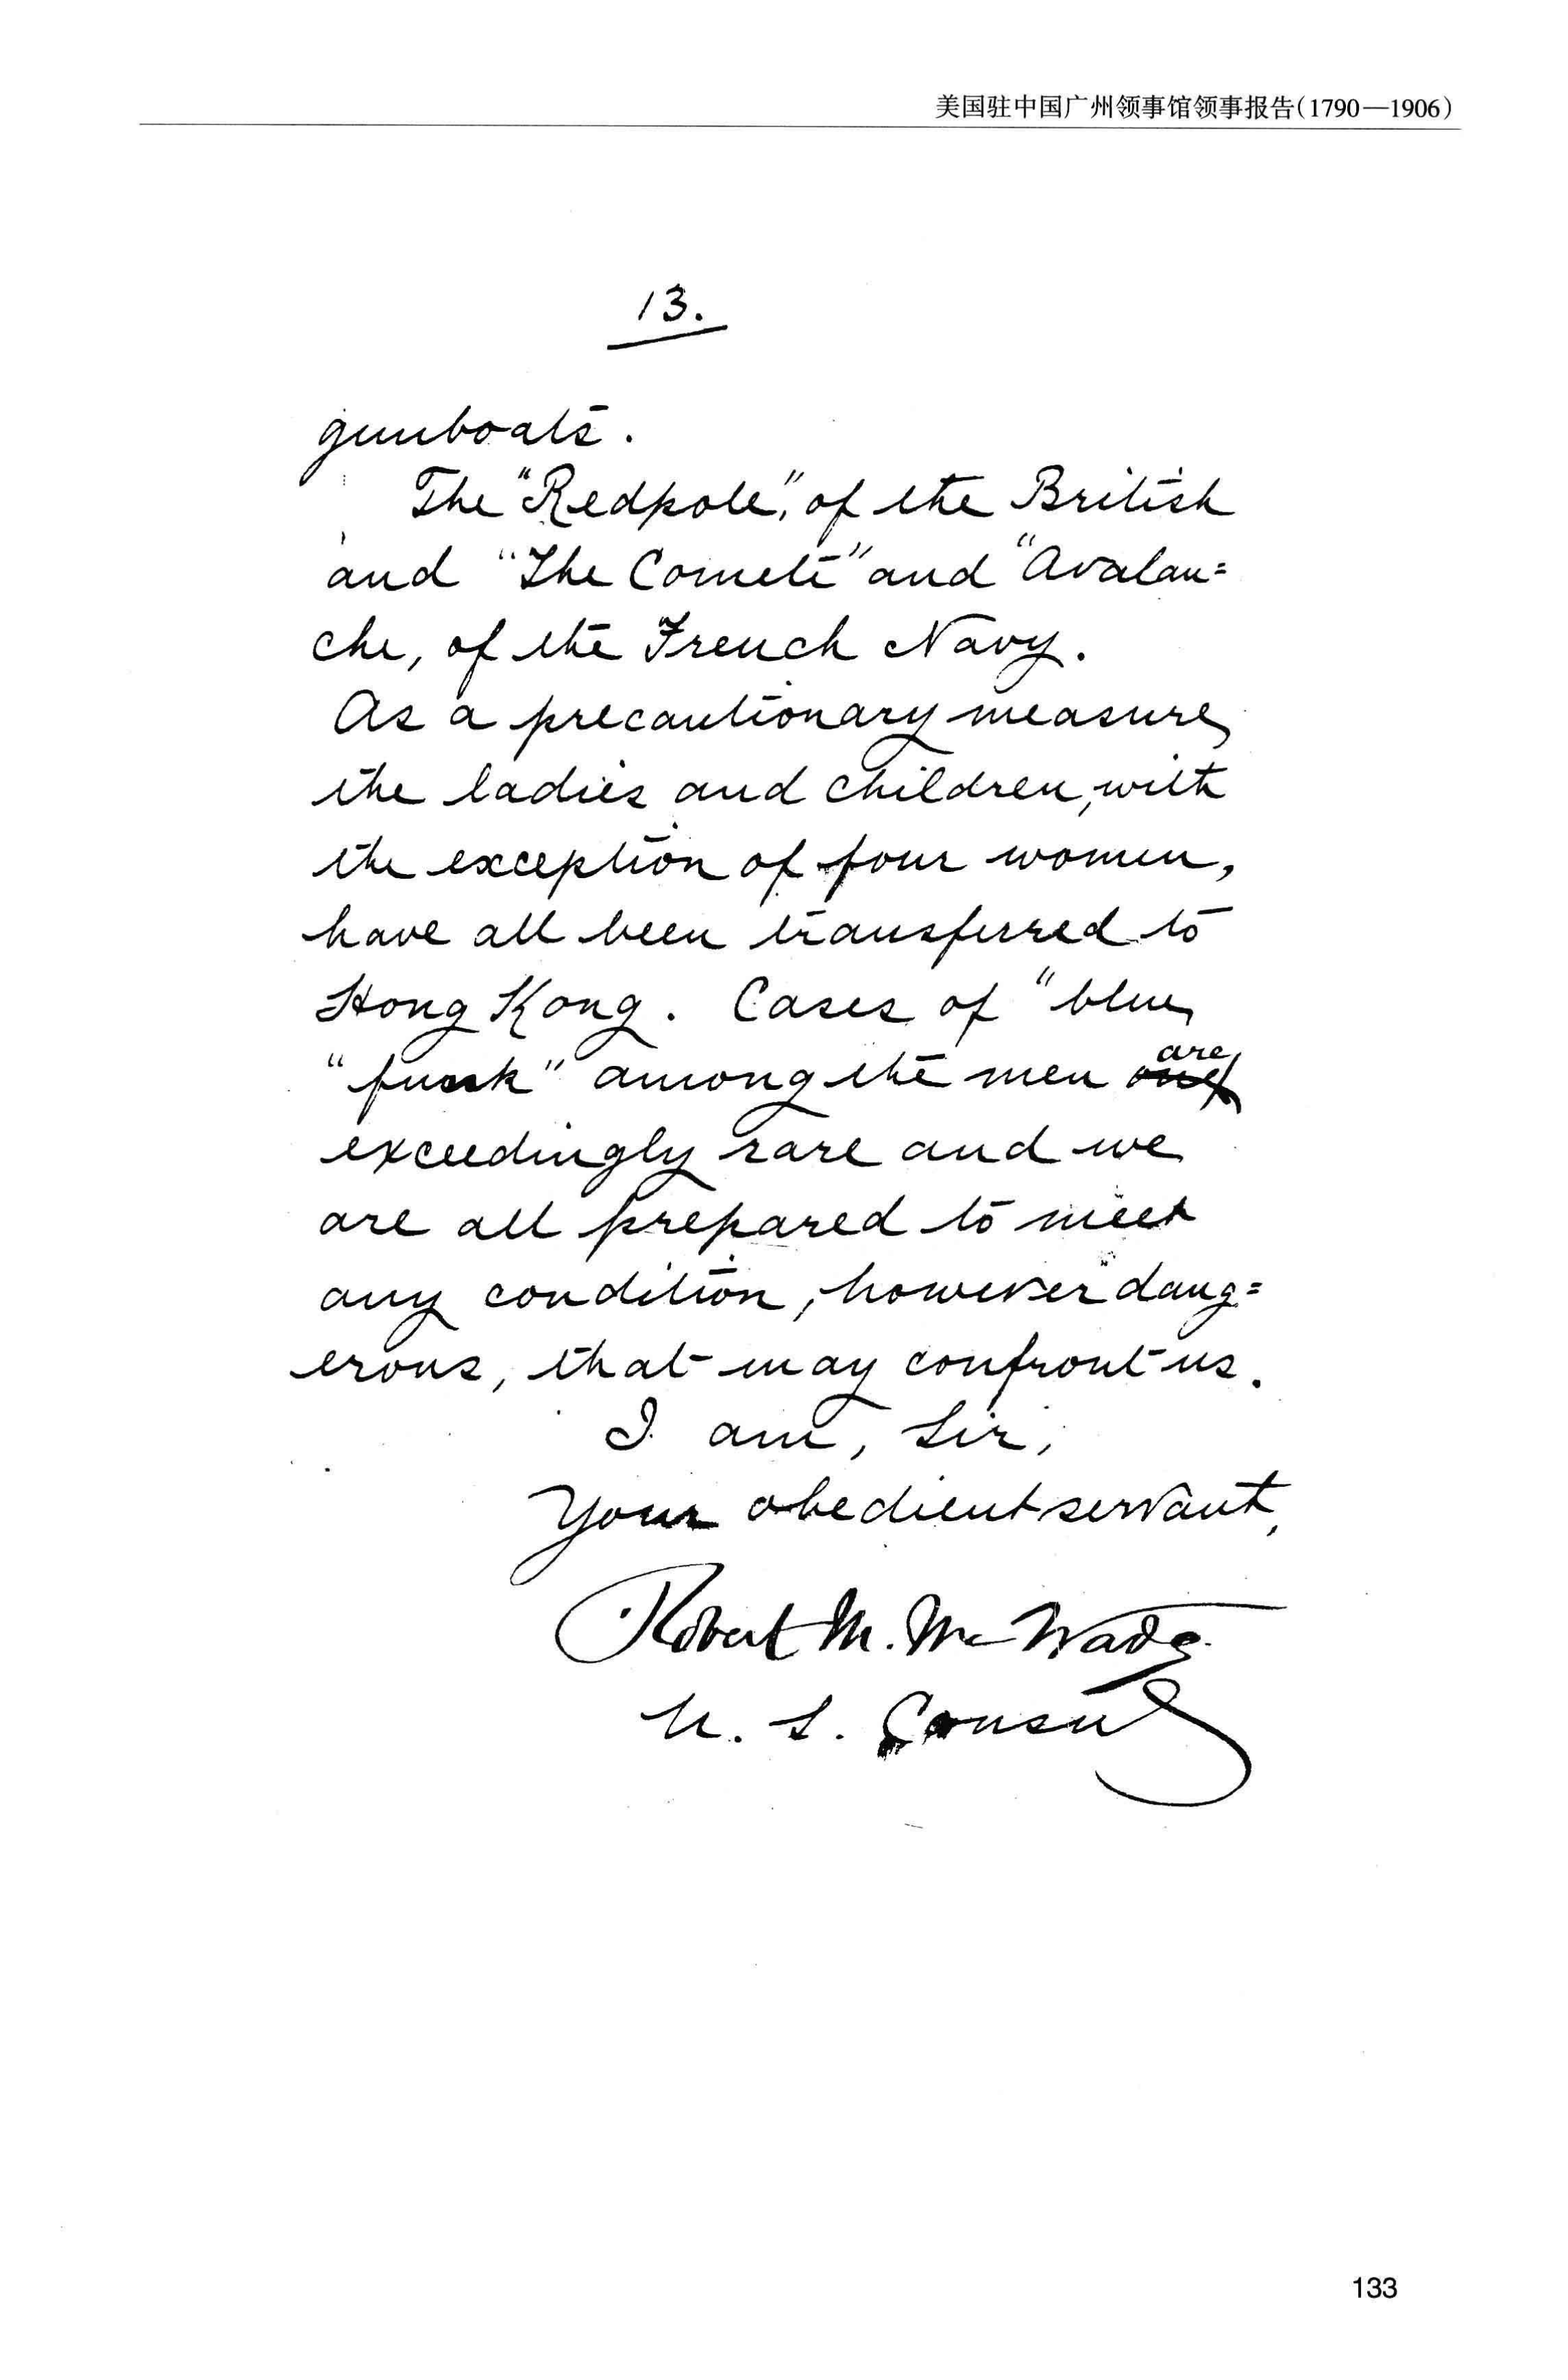 美国驻中国广州领事馆领事报告(1790—1906)
13.
gunboats.
The "Redpole", of the British
and "The Comete" and "Avalan=
che, of the French Navy.
As a precautionary measure
the ladies and children, with
the exception of four women,
have all been transferred to
Hong Kong. Cases of "blue
"funk" among the men are
exceedingly rare and we
are all prepared to meet
any condition, however dang=
erous, that may confront us.
I am, Sir,
Your obedient servant,
Robert M. McWade
U. S. Consul
133